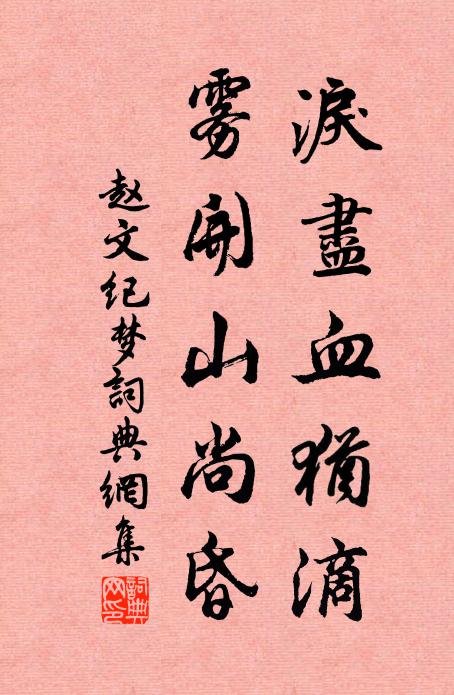 淚盡血猶滴
雾開山尚昏
赵文纪梦詞典網集
詞典
网印